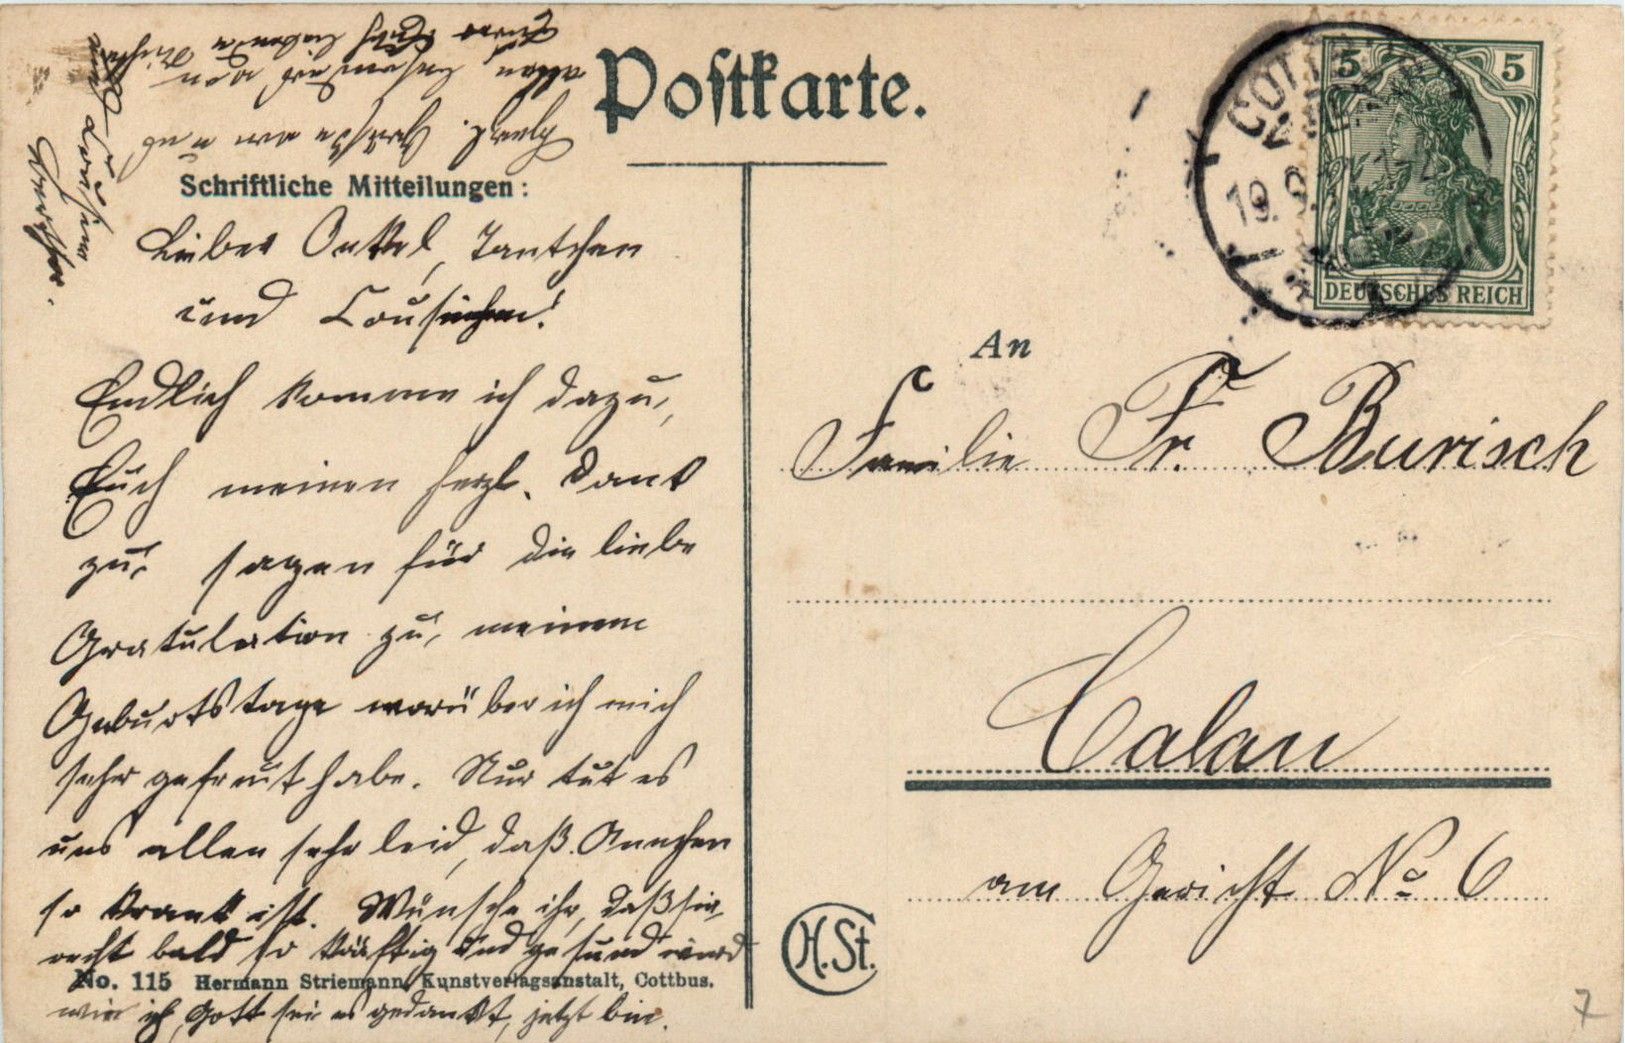 Postkarte.
Schriftliche Mitteilungen:
Lieber Onkel, Tantchen
und Cousinchen!
Endlich komme ich dazu,
Euch meinen herzl. Dank
zu sagen für die liebe
Gratulation zu meinem
Geburtstage worüber ich mich
sehr gefreut habe. Nur tut es
uns allen sehr leid, daß Annchen
so krank ist. Wünsche ihr, daß sie
recht bald so kräftig und gesund wird
wie ich, Gott sei es gedankt, jetzt bin.
Herzl. Grüße an
allen von
No. 115 Hermann Striemann, Kunstverlagsanstalt, Cottbus.
COTTBUS
19.9.
5 5
DEUTSCHES REICH
An
Familie Fr. Burisch
Calau
am Gericht No 6
H.St.
7